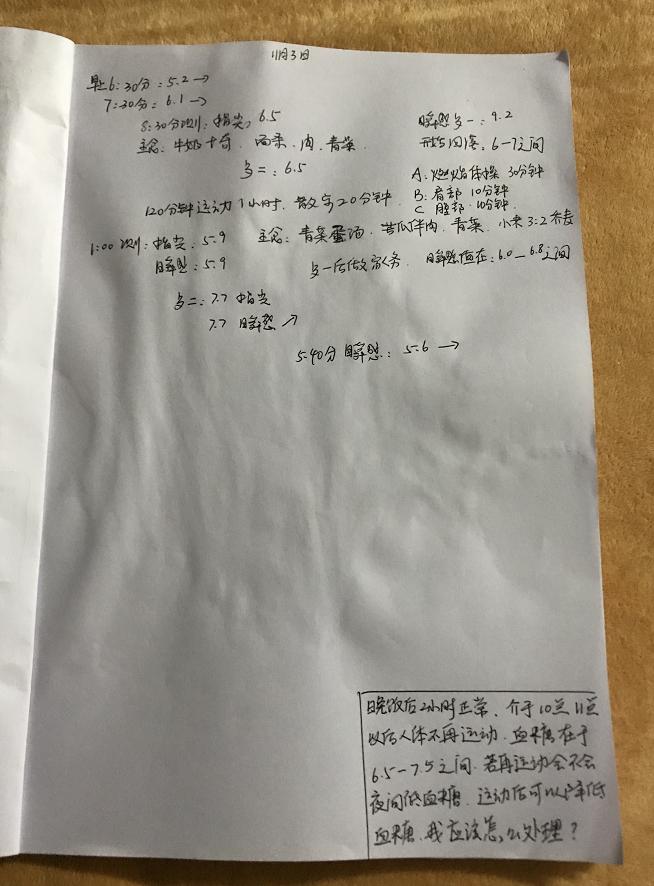 11月3日
早上6:30分:5.2→
7:30分:6.1→
8:30分测:指尖,6.5
主食:牛奶 西柔.肉.青菜.
多二:6.5
瞬感多一:9.2
开始回落.6-7之间
A:燃焰体操 30分钟
B:肩部 10分钟
C 腰部.10分钟.
120分钟运动1小时.散步20分钟.
1:00测:指尖.5.9
瞬感:5.9
主食:青菜蛋汤.苦瓜伴肉.青菜.小米3:2
多一后做家务. 瞬感值在:6.0—6.8之间
多二:7.7 指尖
7.7 瞬感↗
5:40分 瞬感:5.6→
晚饭后2小时正常、介于10点11点
以后人体不再运动.血糖在于
6.5-7.5之间.若再运动会不会
夜间低血糖.运动后可以降低
血糖.我应该怎么处理?